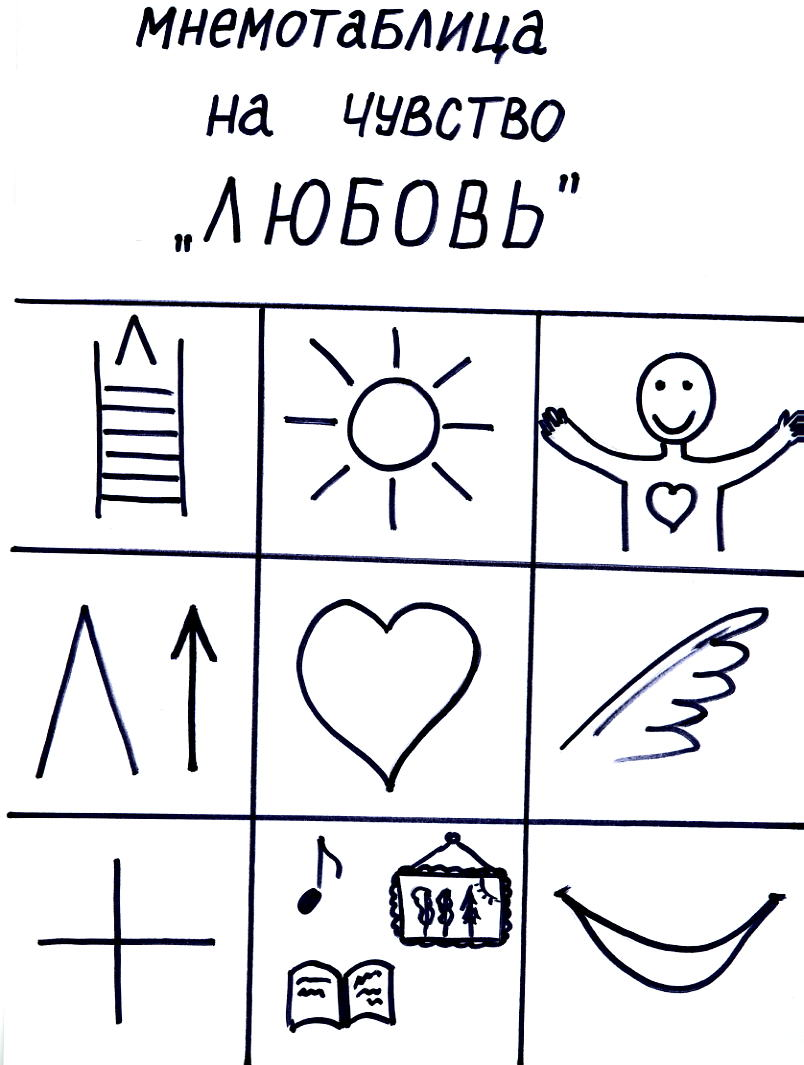 мнемотаблица
на чувство
„ЛЮБОВЬ"
Л
Л